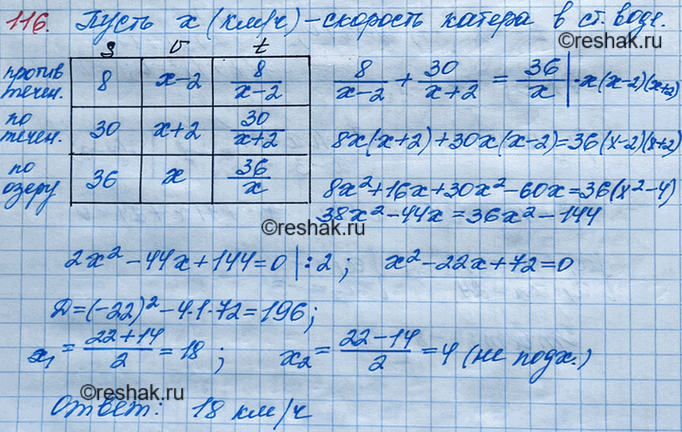 116. Пусть x (км/ч) – скорость катера в ст. воде.
S v t
против течен. 8 x-2 8/(x-2)
по течен. 30 x+2 30/(x+2)
по озеру 36 x 36/x
8/(x-2) + 30/(x+2) = 36/x | ·x(x-2)(x+2)
8x(x+2)+30x(x-2)=36(x-2)(x+2)
8x²+16x+30x²-60x=36(x²-4)
38x²-44x=36x²-144
2x²-44x+144=0 |:2 ; x²-22x+72=0
D=(-22)²-4·1·72=196;
x₁=(22+14)/2=18 ; x₂=(22-14)/2=4 (не подх.)
Ответ: 18 км/ч
©reshak.ru